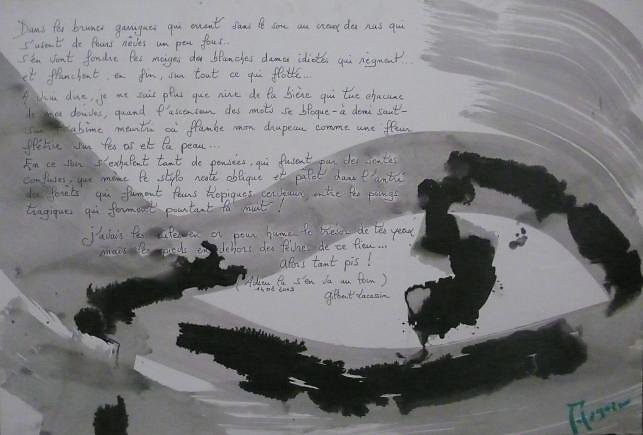 Dans les brunes garrigues qui errent sans le son au creux des rus qui
s'usent de leurs rêves un peu fous..
s'en vont fondre les neiges des blanches dames idiotes qui règnent...
et flanchent, en fin, sur tout ce qui flotte...
dire, je ne sais plus que rire de la bière qui tue chacune
de mes douves, quand l'ascenseur des mots se bloque à demi saut
abîme meurtri où flambe mon drapeau comme une fleur
flétrie sur les os et la peau...
En ce s'exhalent tant de pensées, qui fusent par des sentes
confuses, que même le stylo reste oblique et pâlot dans l'antre
des forêts qui fument leurs tropiques cerveaux, entre les poings
tragiques qui forment pourtant la nuit !
j'avais les en or pour humer le trésor de tes yeux
mais les pieds en dehors des fèvres de ce lieu...
Alors tant pis !
(Adieu la s'en va au loin)
Gilbert Lacassin